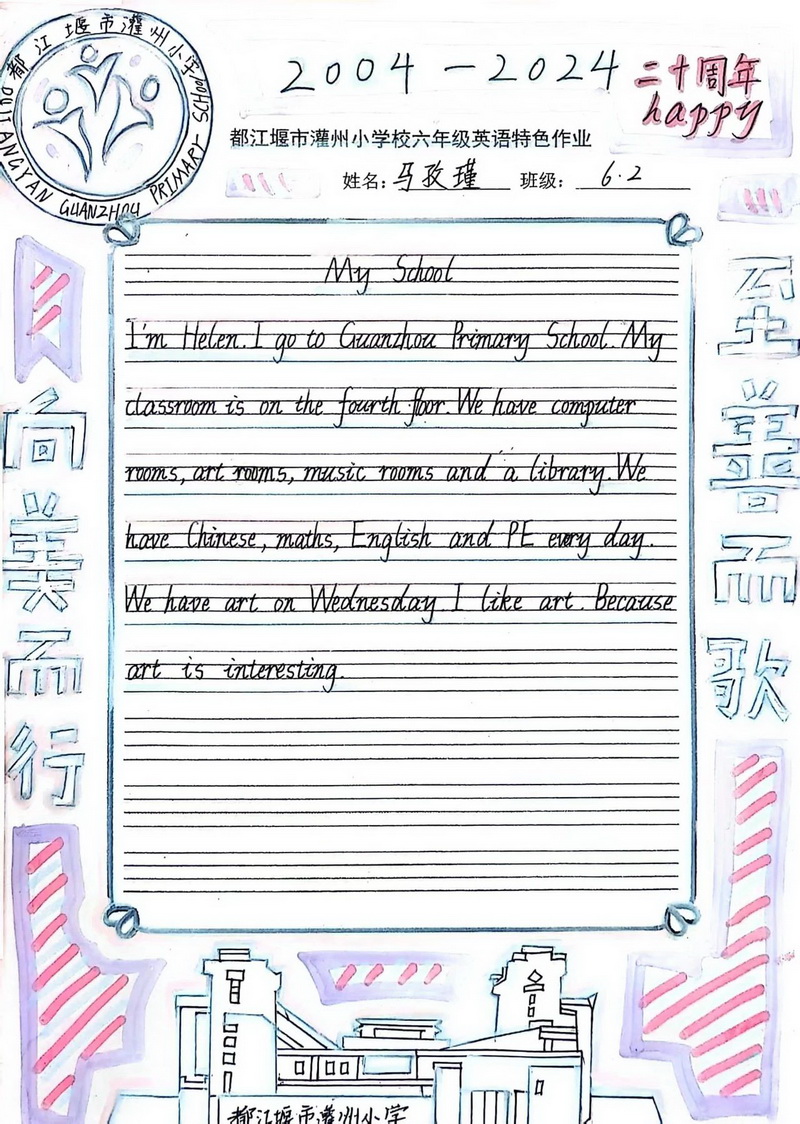 都江堰市灌州小学
DUJIANGYAN GUANZHOU PRIMARY SCHOOL
2004-2024
二十周年
happy
都江堰市灌州小学校六年级英语特色作业
姓名:马孜瑾 班级: 6.2
My School
I'm Helen. I go to Guanzhou Primary School. My
classroom is on the fourth floor. We have computer
rooms, art rooms, music rooms and a library. We
have Chinese, maths, English and PE every day.
We have art on Wednesday. I like art. Because
art is interesting.
向美而行
至善而歌
都江堰市灌州小学